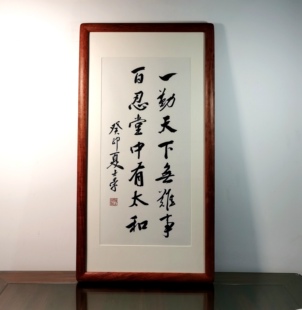 一勤天下無難事
百忍堂中有太和
癸卯夏